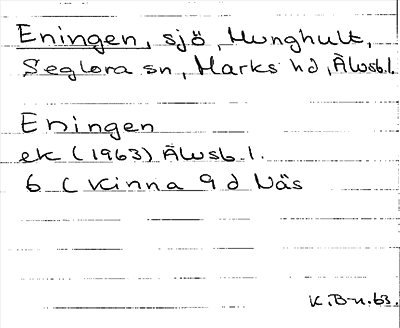 Eningen, sjö, Hunghult,
Seglora sn, Marks hd, Älvsb.l.
Eningen
ek (1963) Älvsb.l.
6 C Kinna 9 d Näs
K.B-n.63.